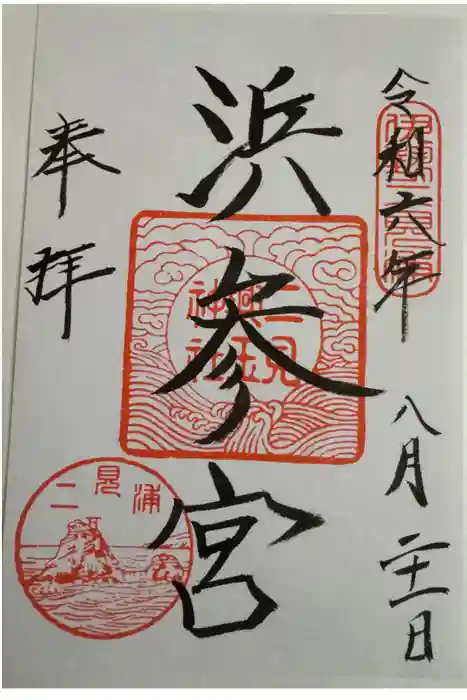 令和六年 八月二十一日
伊勢二見浦
浜参宮
二見
興玉
神社
奉拝
二見浦